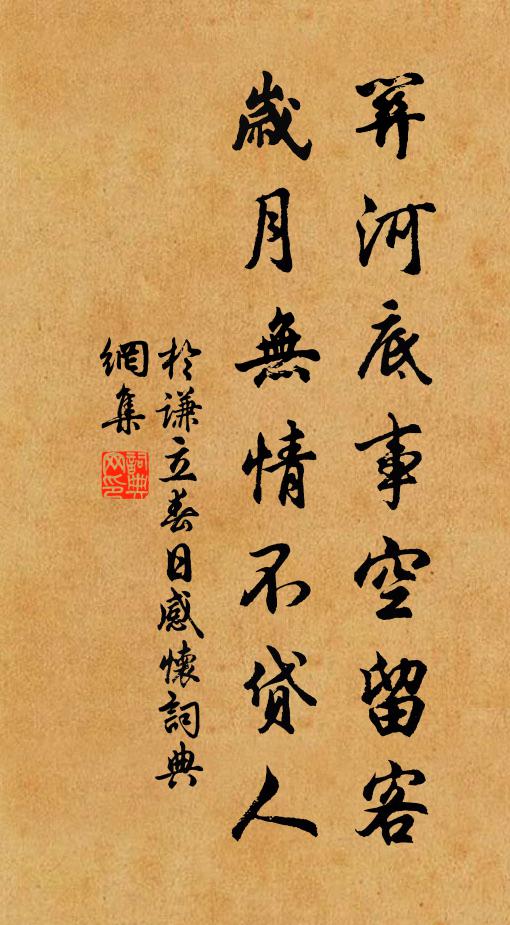 關河底事空留客
歲月無情不貸人
於謙立春日感懷詞典
網集
詞典
网印